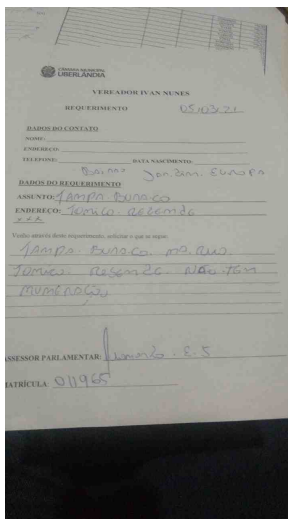 CÂMARA MUNICIPAL
UBERLÂNDIA
VEREADOR IVAN NUNES
REQUERIMENTO 05/03/21
DADOS DO CONTATO
NOME:
ENDEREÇO:
TELEFONE: DATA NASCIMENTO:
Bairro Jardim Europa
DADOS DO REQUERIMENTO
ASSUNTO: TAMPA BURACO
ENDEREÇO: Tomico Rezende
Venho através deste requerimento, solicitar o que se segue:
TAMPA BURACO NA RUA
Tomico Rezende NÃO TEM
NUMERAÇÃO
ASSESSOR PARLAMENTAR: E.S
MATRÍCULA: 011965